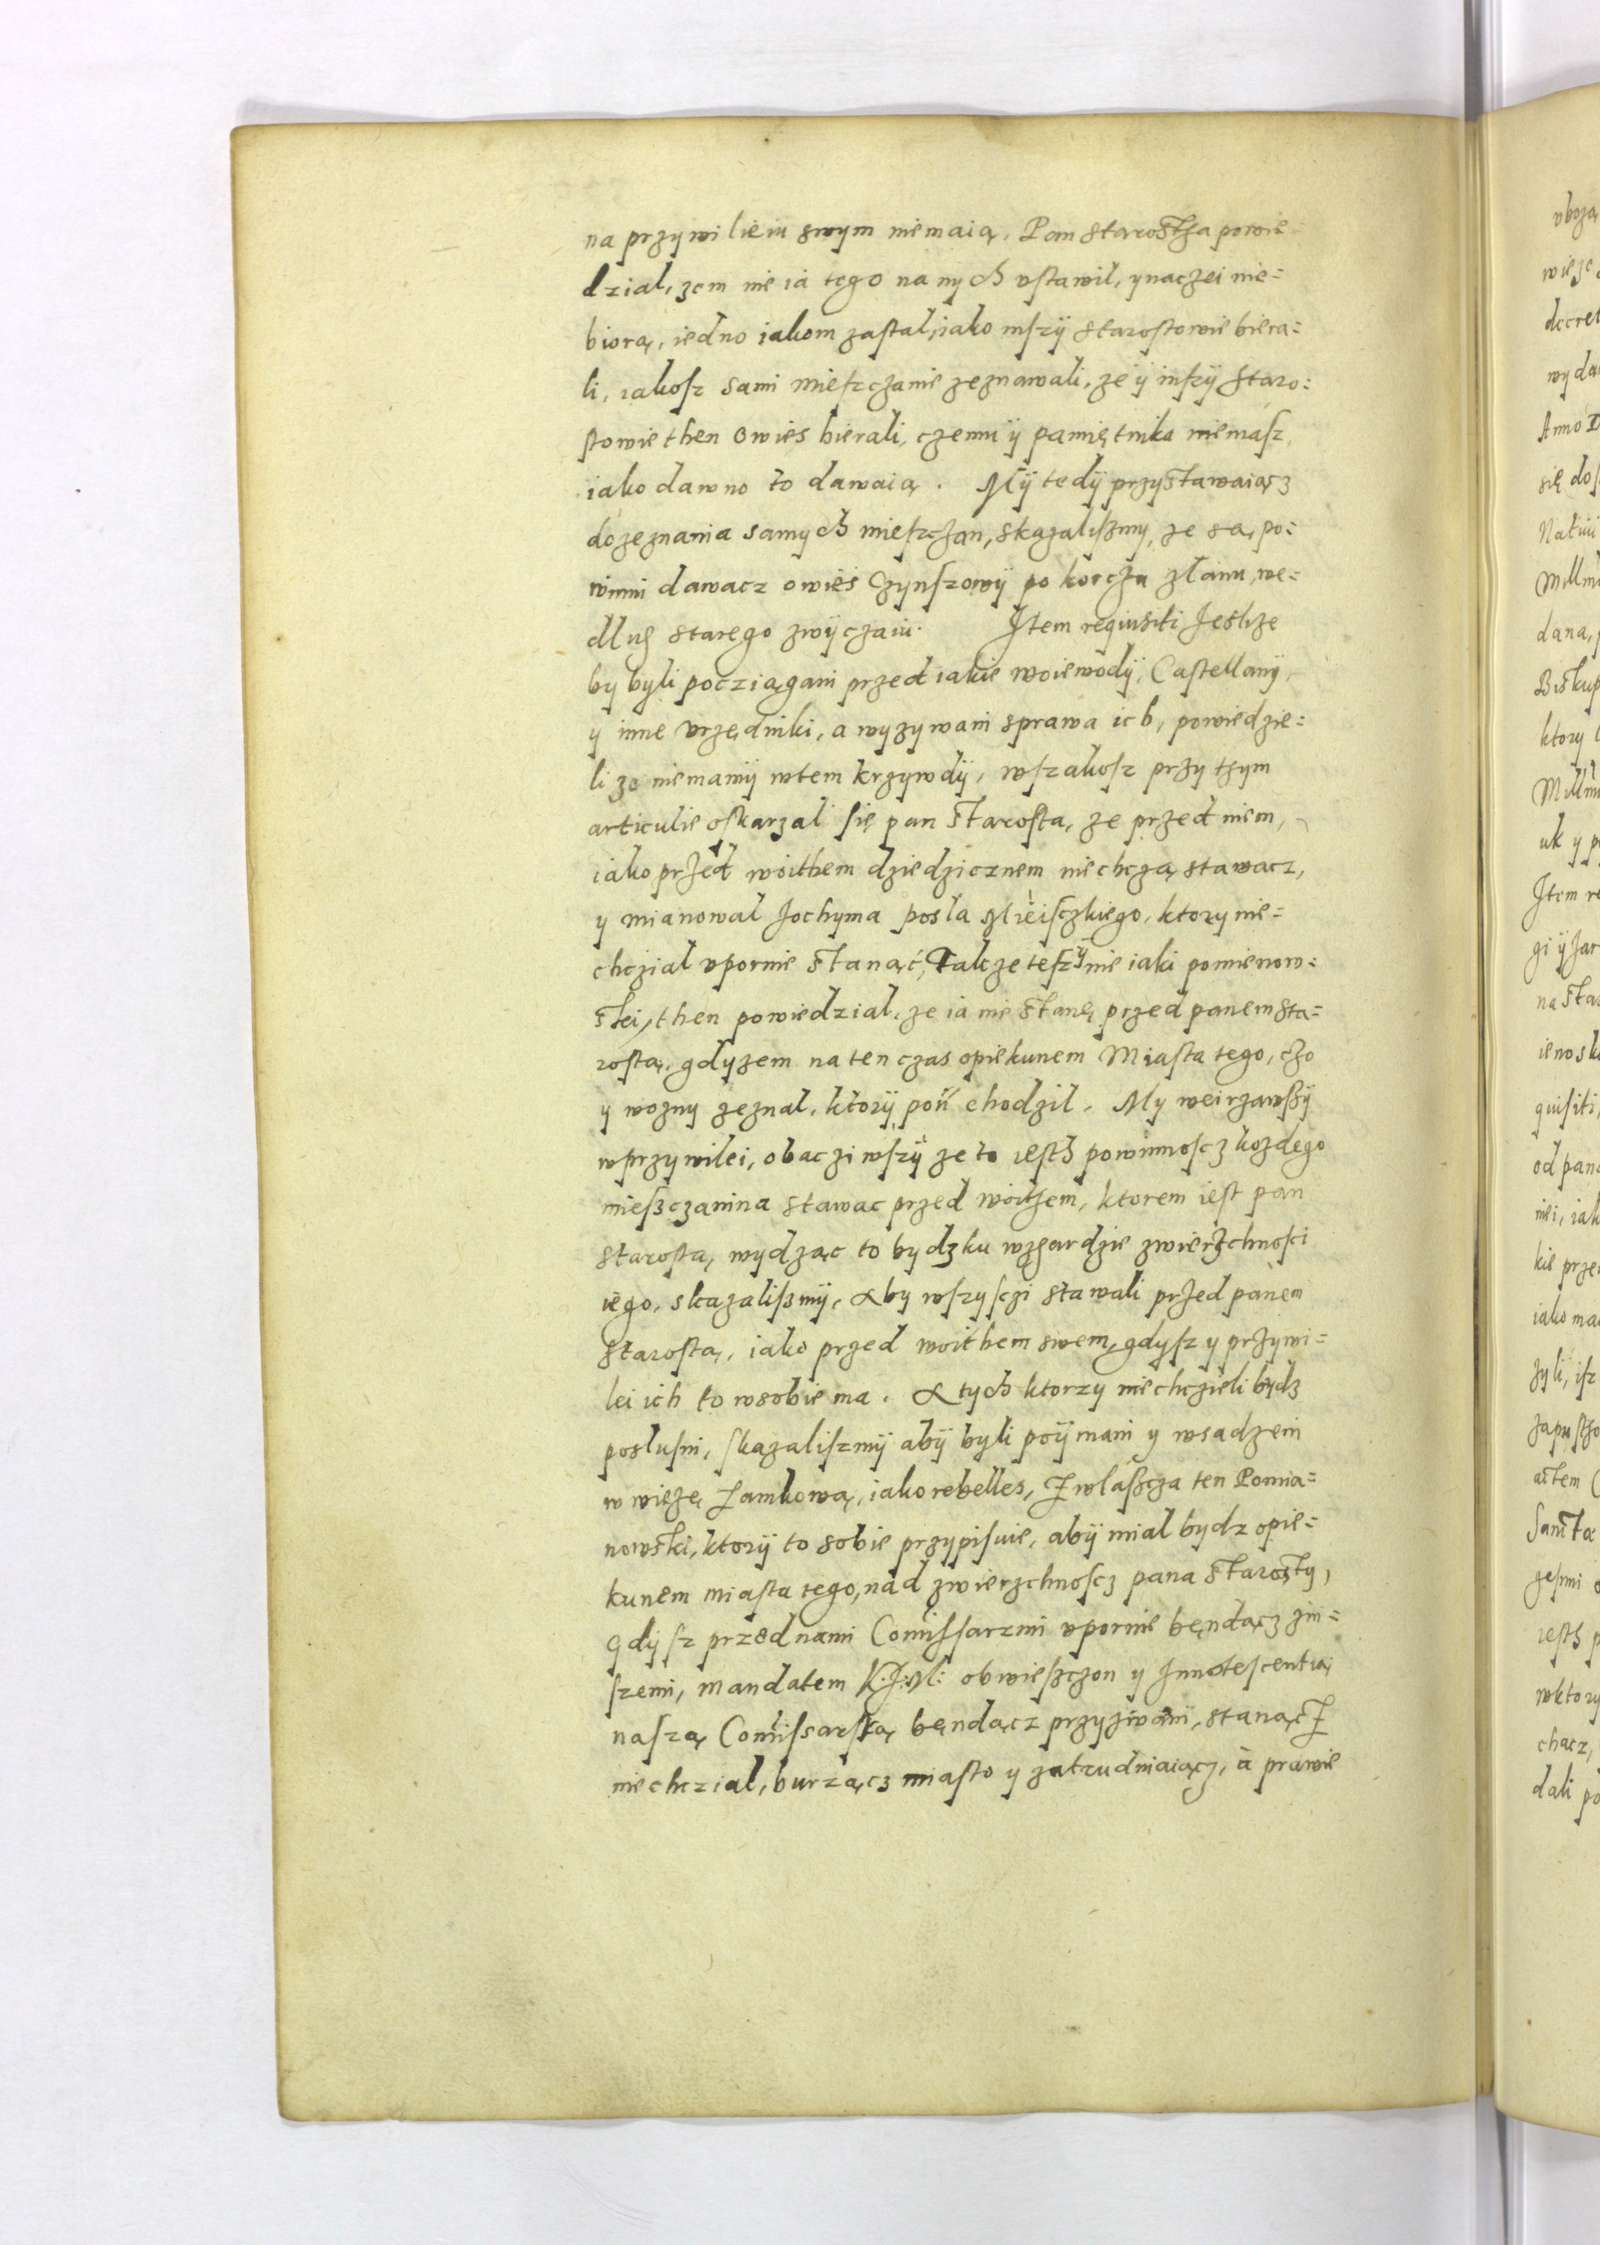 na przywilieiu swym niemaią. Pan starostha powie=
dzial, zem nie ia tego na nych vstawil, ynaczei nie=
biorą, iedno iakom zastal, iako inszÿ starostowie biera=
li, iakosz sami mieszczanie zeznawali, ze ÿ inszÿ staro=
stowie then owies bierali, czemu ÿ pamiętnika niemasz
iako dawno to dawaią. Mÿ tedÿ przystawaiącz
do zeznania samych mieszczan, skazaliszmy, ze są po=
winni dawacz owies czynszowÿ po korczu złanu, we=
dlug starego zwÿczaiu. Item requisiti Jeslize
by byli pocziągani przed iakie woiewodÿ, Castellanÿ,
y inne vrzędniki, a wyzywani sprawa ich, powiedzie=
li ze niemamÿ wtem krzywdÿ, wszakosz przy thym
articulie oskarzal się pan starosta, ze przed niem,
iako przed woithem dziedzicznem niechczą stawacz,
y mianowal Jochyma posla Mieisczkiego, ktory nie=
chczial vpornie stanąć, Takze tesz ÿ nie iaki pomienow=
skei, then powiedzial, ze ia nie stanę przed panem sta=
rostą, gdyzem na ten czas opiekunem Miasta tego, czo
y wozny zeznal, ktorÿ poń chodzil. My weirzawszÿ
wprzywilei, obacziwszÿ ze to iesth powinnoscz kozdego
mieszczanina stawac przed woithem, ktorem iest pan
starosta, wydząc to bydz ku wzgardzie zwierzchnosci
iego, skazaliszmÿ, aby wszysczi stawali przed panem
starostą, iako przed woithem swem, gdysz y przywi=
lei ich to wsobie ma. A tych ktorzy niechczieli bydz
poslusni, skazaliszmÿ abÿ byli poÿmani y wsadzeni
w wiezę zamkową, iako rebelles, zwlaszcza ten Pomia=
nowski, ktorÿ to sobie przypisuie, abÿ mial bydz opie=
kunem miasta tego, nad zwierzchnoscz pana starosty,
gdÿsz przed nami Comissarzmi vpornie będącz zin=
szemi, mandatem K:J:M: obwieszczon y Innotescentią
naszą Comissarską będącz przyzwanÿ, stanącz
niechczial, burzącz miasto y zatrudniaiącz, à prawie